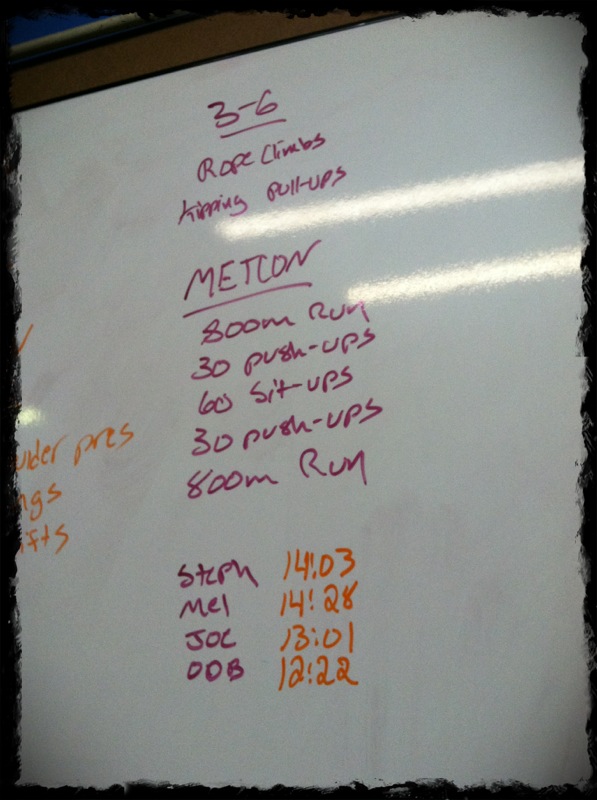 3-6
Rope Climbs
Kipping pull-ups
METCON
800m Run
30 push-ups
60 Sit-ups
30 push-ups
800m Run
ulder pres
ngs
ifts
Steph 14:03
Mel 14:28
JOE 13:01
ODB 12:22